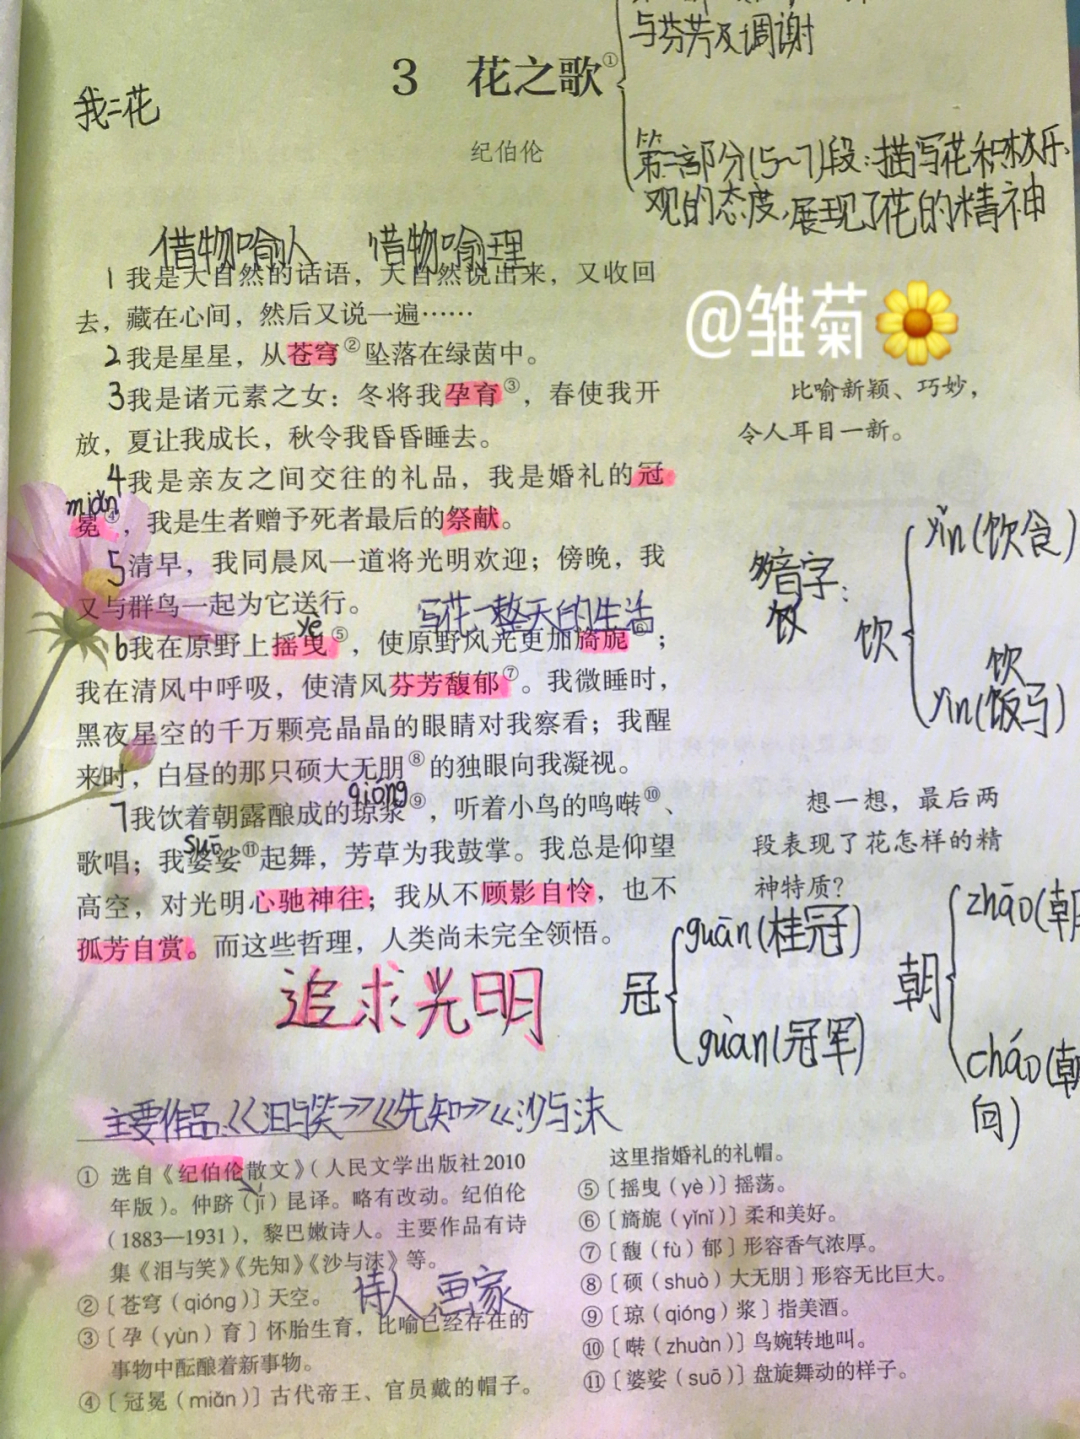 与芬芳及调谢
3 花之歌①
我=花
纪伯伦
第二部分(5~7)段:描写花积极乐
观的态度,展现了花的精神
借物喻人 借物喻理
1我是大自然的话语，大自然说出来，又收回
去，藏在心间，然后又说一遍……
@雏菊
2我是星星，从苍穹②坠落在绿茵中。
3我是诸元素之女：冬将我孕育③，春使我开
放，夏让我成长，秋令我昏昏睡去。
比喻新颖、巧妙，
令人耳目一新。
4我是亲友之间交往的礼品，我是婚礼的冠
miǎn
冕④，我是生者赠予死者最后的祭献。
5清早，我同晨风一道将光明欢迎；傍晚，我
又与群鸟一起为它送行。
写花一整天的生活
yè
6我在原野上摇曳⑤，使原野风光更加旖旎⑥；
我在清风中呼吸，使清风芬芳馥郁⑦。我微睡时，
黑夜星空的千万颗亮晶晶的眼睛对我察看；我醒
来时，白昼的那只硕大无朋⑧的独眼向我凝视。
qióng
7我饮着朝露酿成的琼浆⑨，听着小鸟的鸣啭⑩、
suō
歌唱；我婆娑⑪起舞，芳草为我鼓掌。我总是仰望
高空，对光明心驰神往；我从不顾影自怜，也不
孤芳自赏。而这些哲理，人类尚未完全领悟。
追求光明
多音字:
饮
yǐn(饮食)
饮
yìn(饭马)
想一想，最后两
段表现了花怎样的精
神特质？
冠
guān(桂冠)
guàn(冠军)
朝
zhāo(朝
cháo(朝
向)
主要作品:《泪与笑》《先知》《沙与沫
①选自《纪伯伦散文》（人民文学出版社2010
年版）。仲跻（jī）昆译。略有改动。纪伯伦
（1883—1931），黎巴嫩诗人。主要作品有诗
集《泪与笑》《先知》《沙与沫》等。
诗人 画家
②〔苍穹（qióng）〕天空。
③〔孕（yùn）育〕怀胎生育，比喻已经存在的
事物中酝酿着新事物。
④〔冠冕（miǎn）〕古代帝王、官员戴的帽子。
这里指婚礼的礼帽。
⑤〔摇曳（yè）〕摇荡。
⑥〔旖旎（yǐnǐ）〕柔和美好。
⑦〔馥（fù）郁〕形容香气浓厚。
⑧〔硕（shuò）大无朋〕形容无比巨大。
⑨〔琼（qióng）浆〕指美酒。
⑩〔啭（zhuàn）〕鸟婉转地叫。
⑪〔婆娑（suō）〕盘旋舞动的样子。